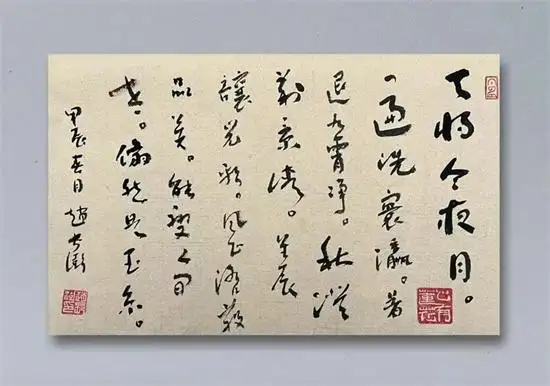 天將今夜月。
一遍洗寰瀛。暑
退九霄淨。秋澄
萬景清。星辰
讓光彩。風
晶英。能變人間
世。翛然是玉京。
甲辰春日 趙